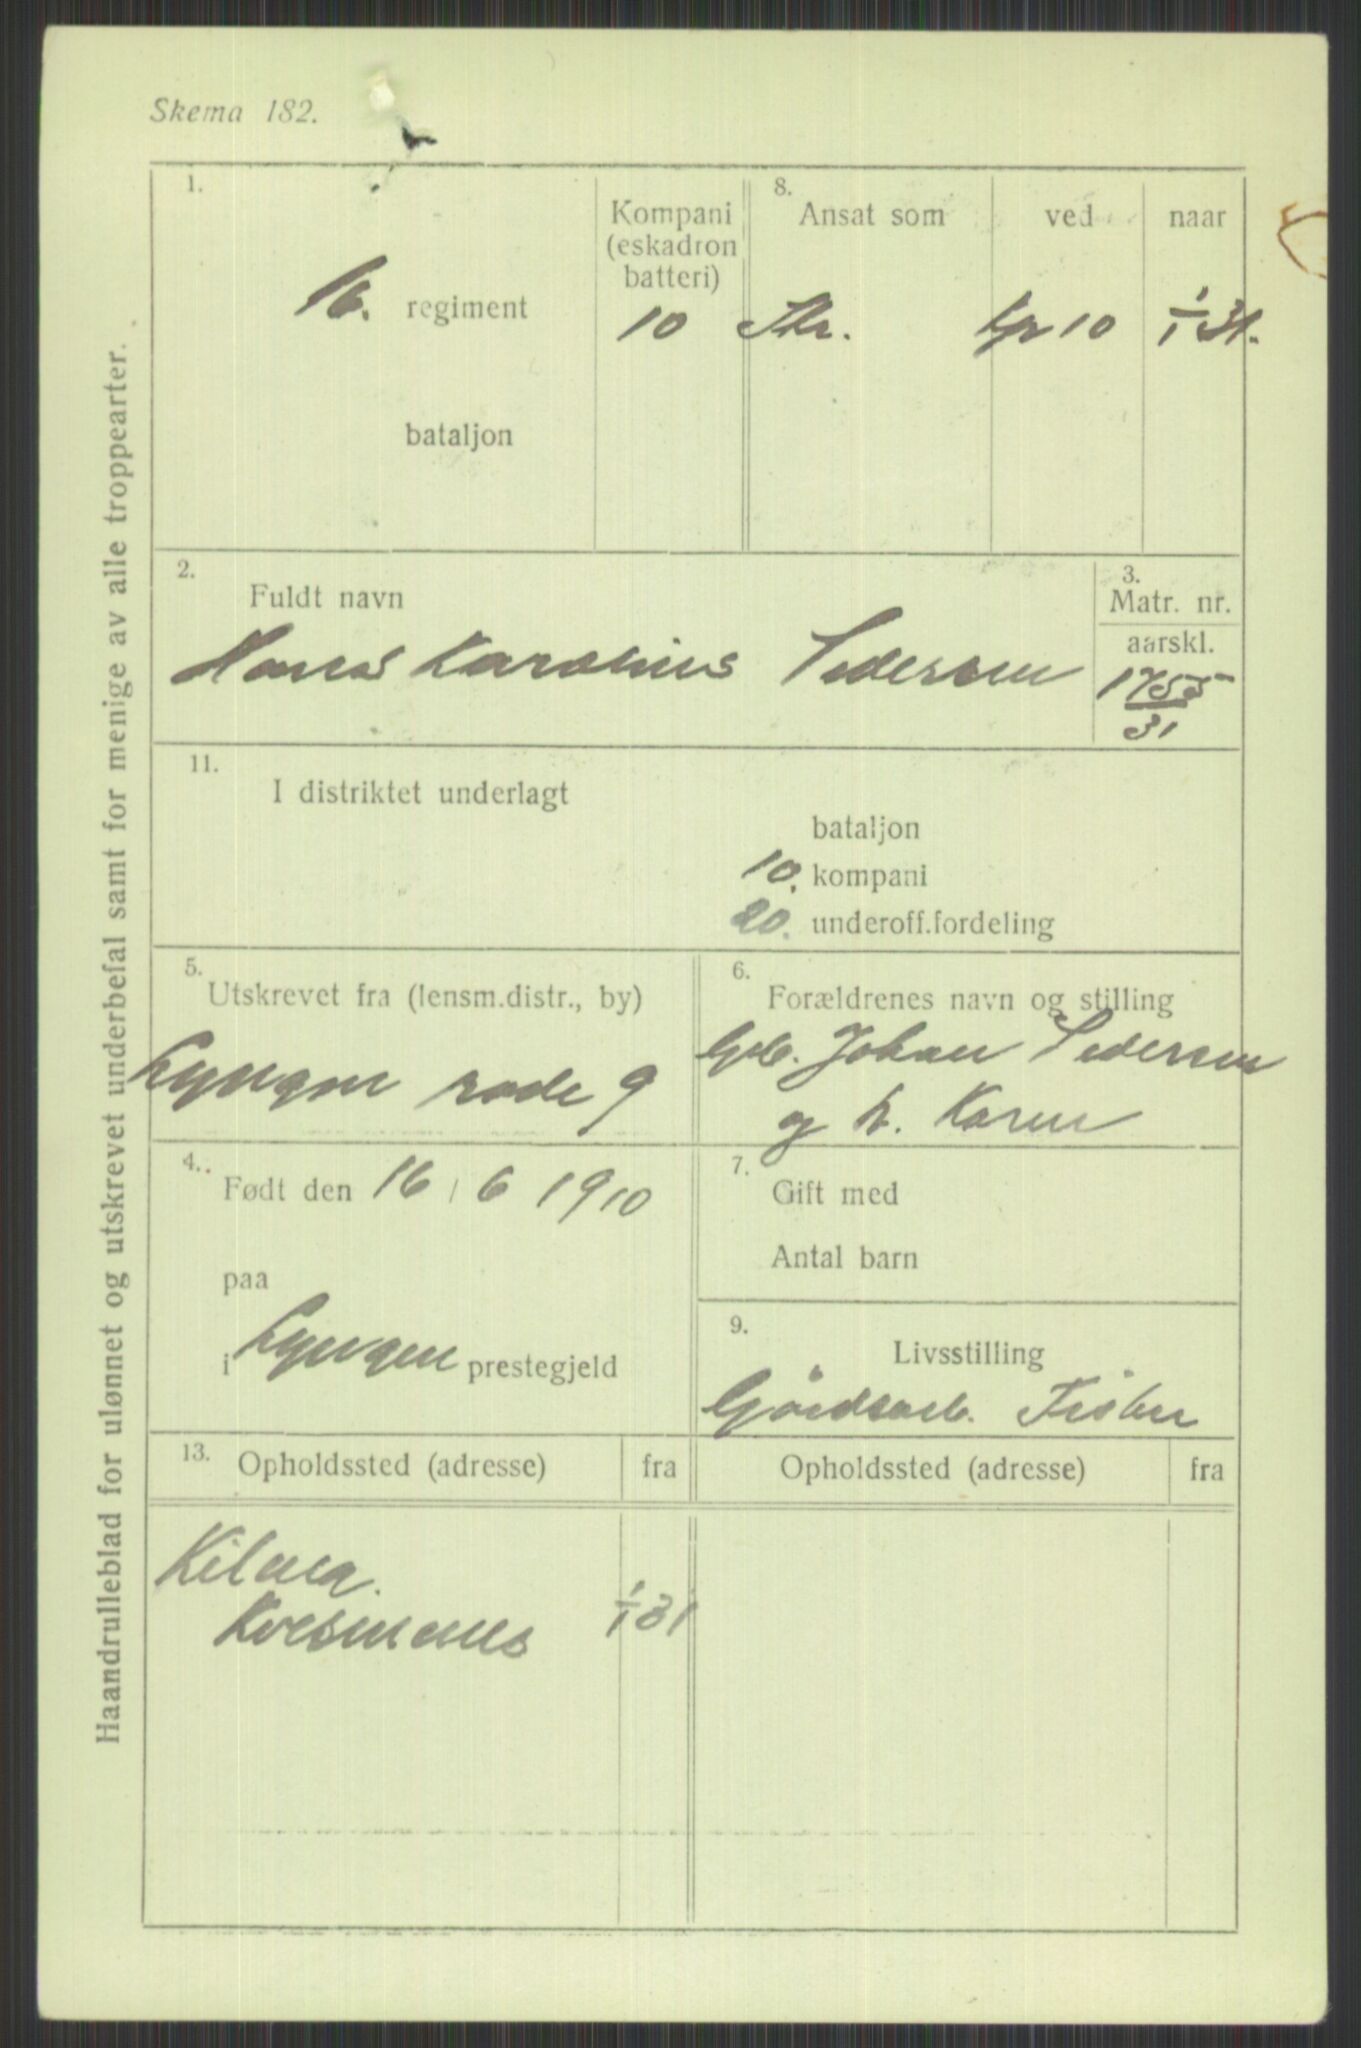 Skema 182.
Haandrulleblad for ulønnet og utskrevet underbefal samt for menige av alle troppearter.
1.
16. regiment
bataljon
Kompani
(eskadron
batteri)
10
8.
Ansat som
ved
naar
kp 10
1/1 31.
2.
Fuldt navn
Hans Karolius Pedersen
3.
Matr. nr.
aarskl.
1755
31
11.
I distriktet underlagt
bataljon
10. kompani
20. underoff.fordeling
5.
Utskrevet fra (lensm.distr., by)
Lyngen rode 9
6.
Forældrenes navn og stilling
Gb. Johan Pedersen
og h. Karen
4.
Født den 16 / 6 1910
paa
i Lyngen prestegjeld
7.
Gift med
Antal barn
9.
Livsstilling
Gårdsarb. Fisker
13.
Opholdssted (adresse)
fra
Opholdssted (adresse)
fra
1/1 31